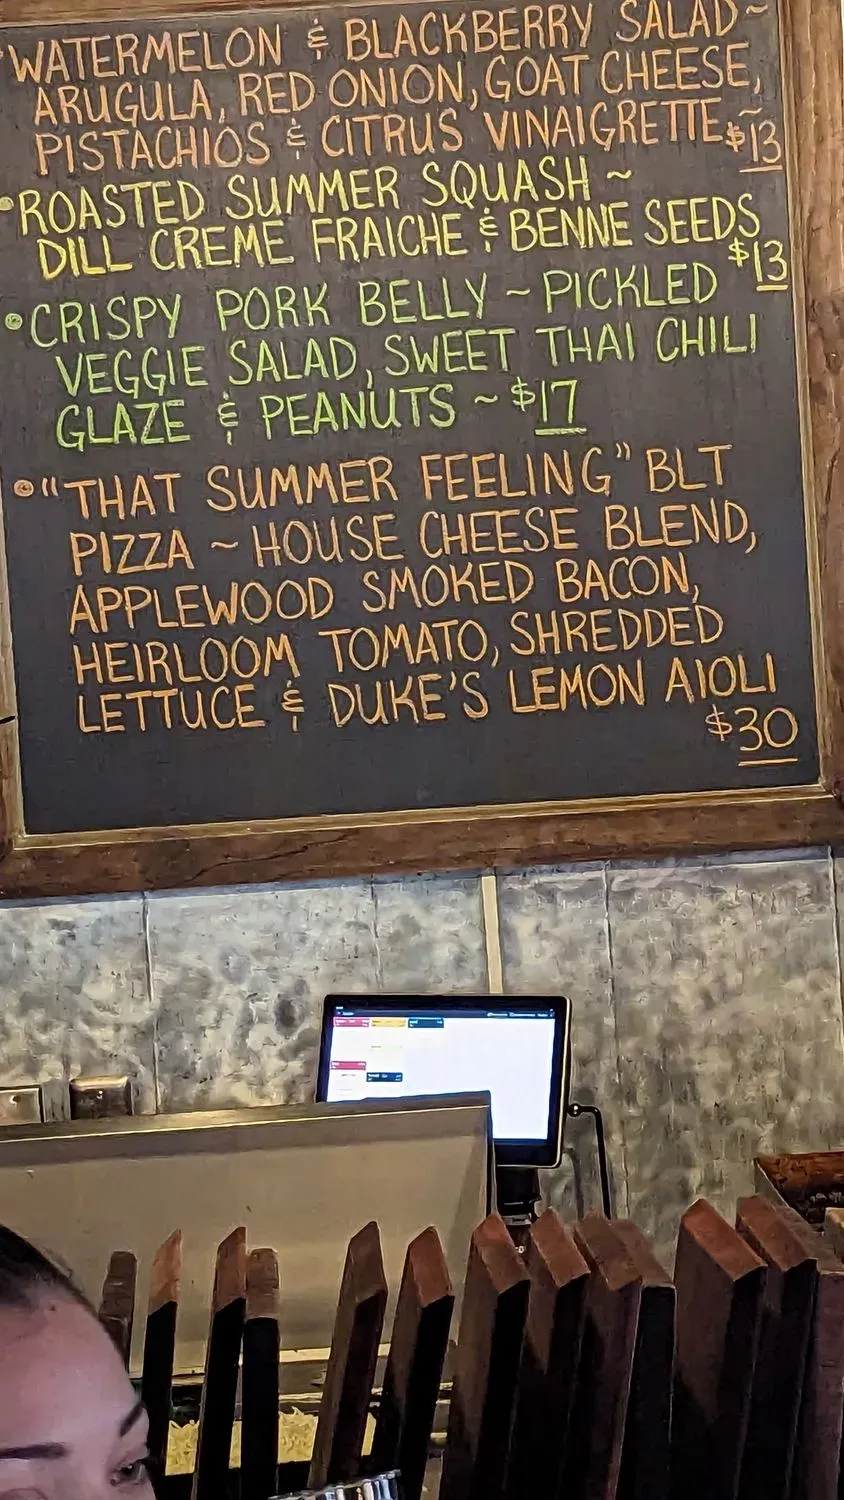 •WATERMELON & BLACKBERRY SALAD~
ARUGULA, RED ONION, GOAT CHEESE,
PISTACHIOS & CITRUS VINAIGRETTE~ $13
•ROASTED SUMMER SQUASH ~
DILL CREME FRAICHE & BENNE SEEDS
$13
•CRISPY PORK BELLY ~ PICKLED
VEGGIE SALAD, SWEET THAI CHILI
GLAZE & PEANUTS ~ $17
•"THAT SUMMER FEELING" BLT
PIZZA ~ HOUSE CHEESE BLEND,
APPLEWOOD SMOKED BACON,
HEIRLOOM TOMATO, SHREDDED
LETTUCE & DUKE'S LEMON AIOLI
$30